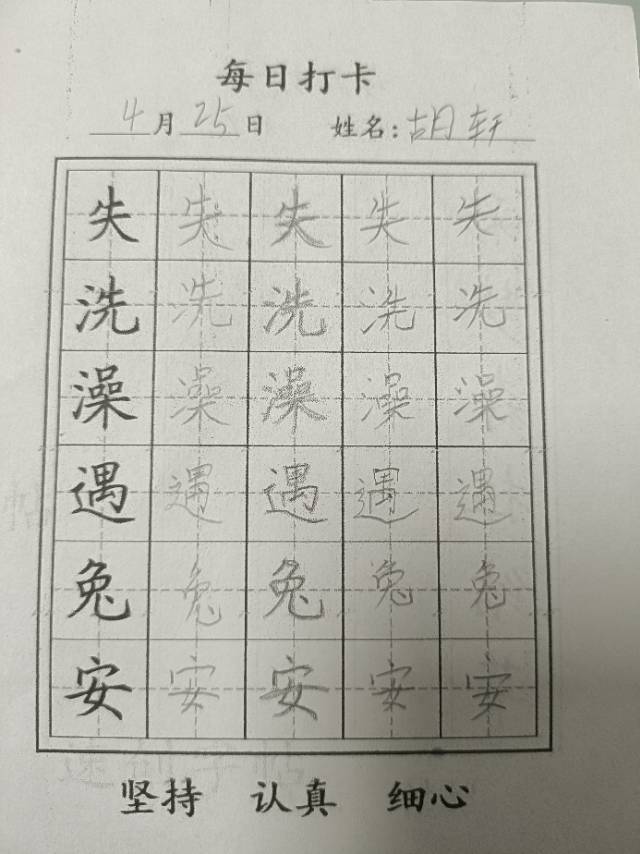 每日打卡
4月25日 姓名:胡轩
失 失 失 失 失
洗 洗 洗 洗 洗
澡 澡 澡 澡 澡
遇 遇 遇 遇 遇
兔 兔 兔 兔 兔
安 安 安 安 安
坚持 认真 细心